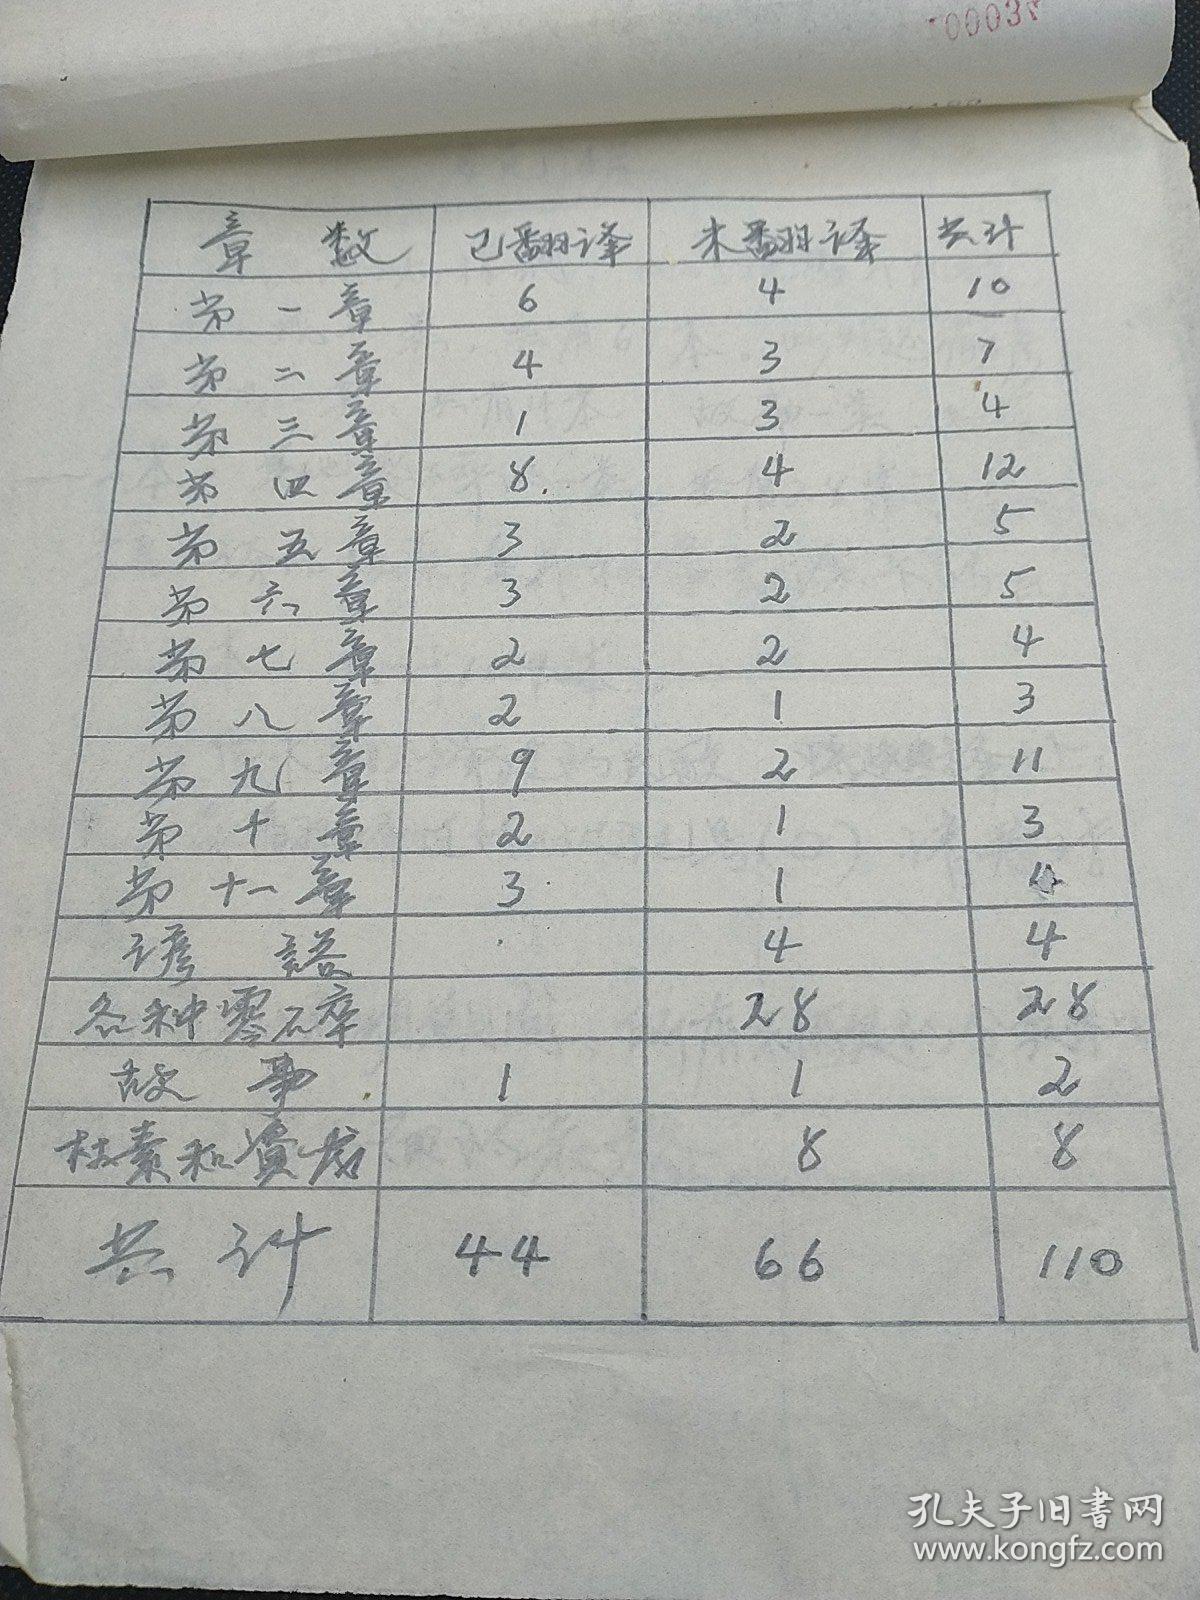 00038
章数 已翻译 未翻译 共计
第一章 6 4 10
第二章 4 3 7
第三章 1 3 4
第四章 8 4 12
第五章 3 2 5
第六章 3 2 5
第七章 2 2 4
第八章 2 1 3
第九章 9 2 11
第十章 2 1 3
第十一章 3 1 4
谚语 4 4
各种零碎 28 28
故事 1 1 2
和 8 8
共计 44 66 110
孔夫子旧书网
www.kongfz.com